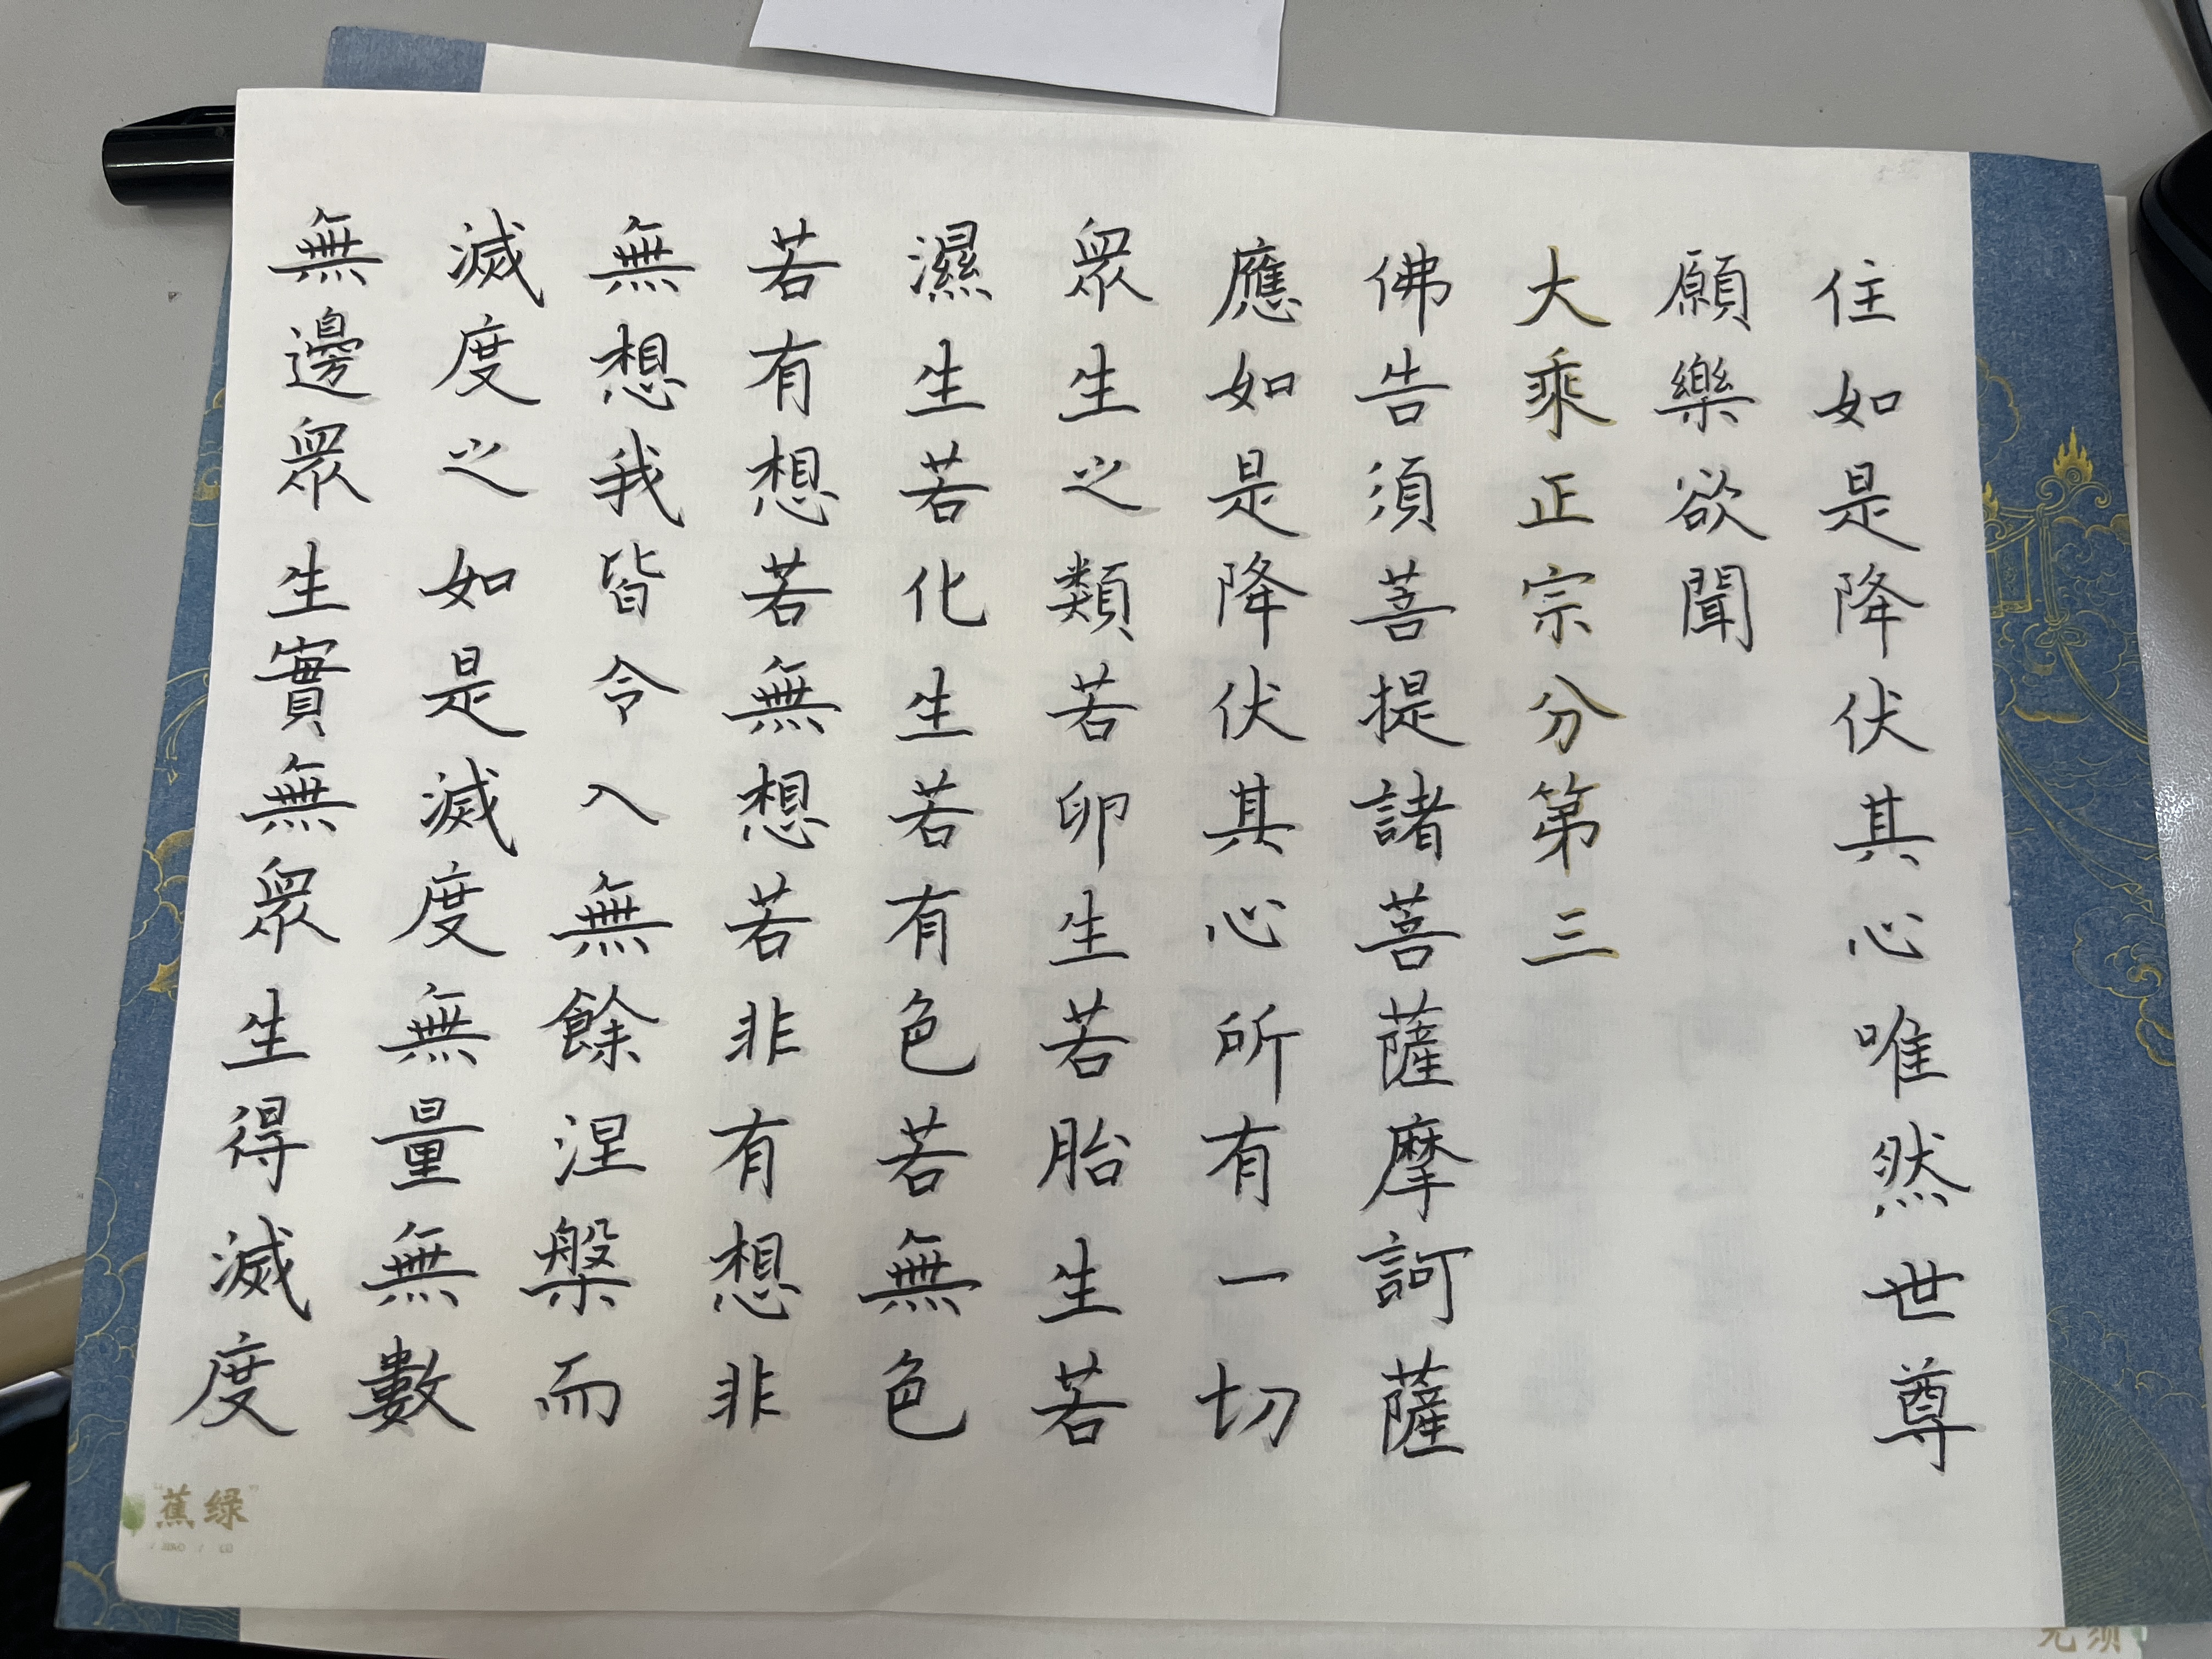 住如是降伏其心唯然世尊
願樂欲聞
大乘正宗分第三
佛告須菩提諸菩薩摩訶薩
應如是降伏其心所有一切
眾生之類若卵生若胎生若
濕生若化生若有色若無色
若有想若無想若非有想非
無想我皆令入無餘涅槃而
滅度之如是滅度無量無數
無邊眾生實無眾生得滅度
"蕉绿"